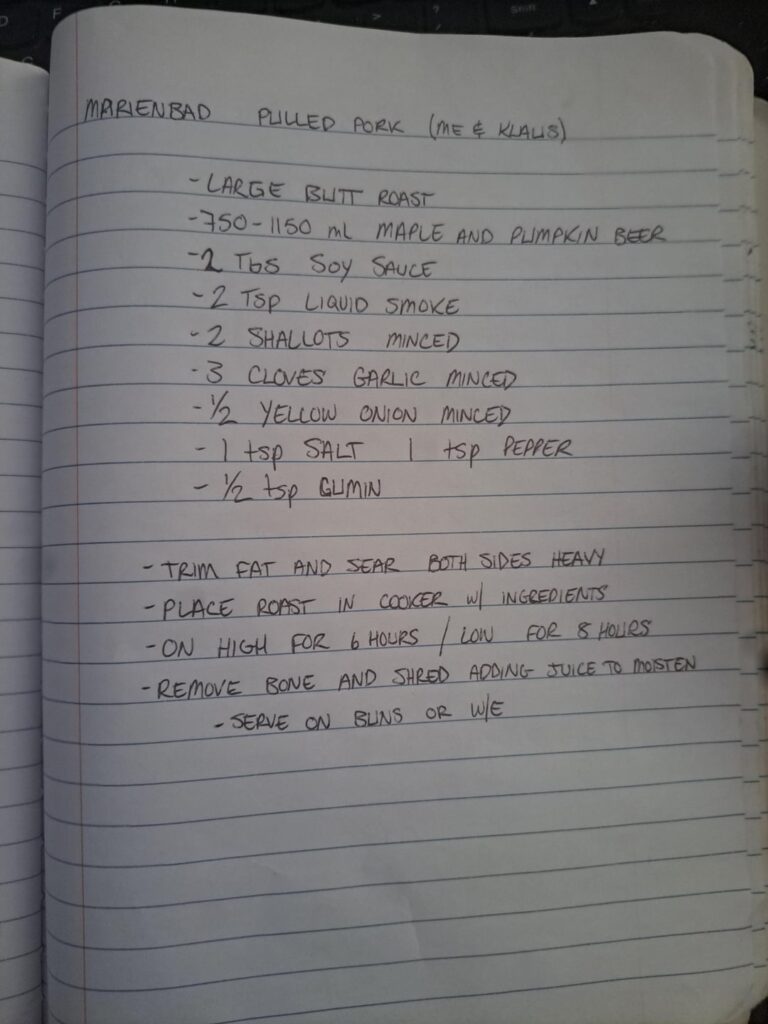 MARIENBAD PULLED PORK (ME & KLAUS)
- LARGE BUTT ROAST
- 750-1150 ml MAPLE AND PUMPKIN BEER
- 2 Tbs SOY SAUCE
- 2 Tsp LIQUID SMOKE
- 2 SHALLOTS MINCED
- 3 CLOVES GARLIC MINCED
- 1/2 YELLOW ONION MINCED
- 1 tsp SALT 1 tsp PEPPER
- 1/2 tsp CUMIN
- TRIM FAT AND SEAR BOTH SIDES HEAVY
- PLACE ROAST IN COOKER W/ INGREDIENTS
- ON HIGH FOR 6 HOURS / LOW FOR 8 HOURS
- REMOVE BONE AND SHRED ADDING JUICE TO MOISTEN
- SERVE ON BUNS OR W/E